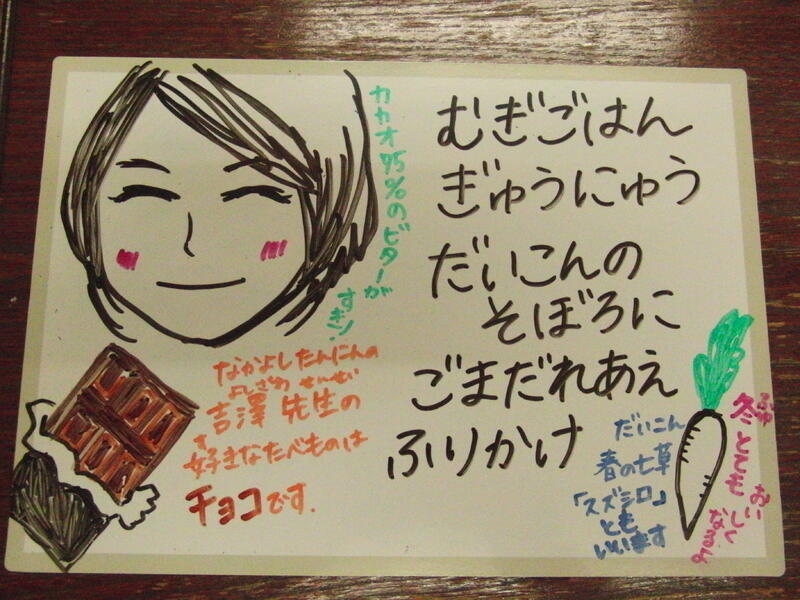 むぎごはん
ぎゅうにゅう
だいこんの
そぼろに
ごまだれあえ
ふりかけ
カカオ95%のビターが
すき!
なかよしたんにんの
よしざわ せんせい
吉澤 先生の
す
好きなたべものは
チョコです.
だいこん
春の七草
「スズシロ」
とも
いいます
ふゆ
冬とても
おいしく
なるよ